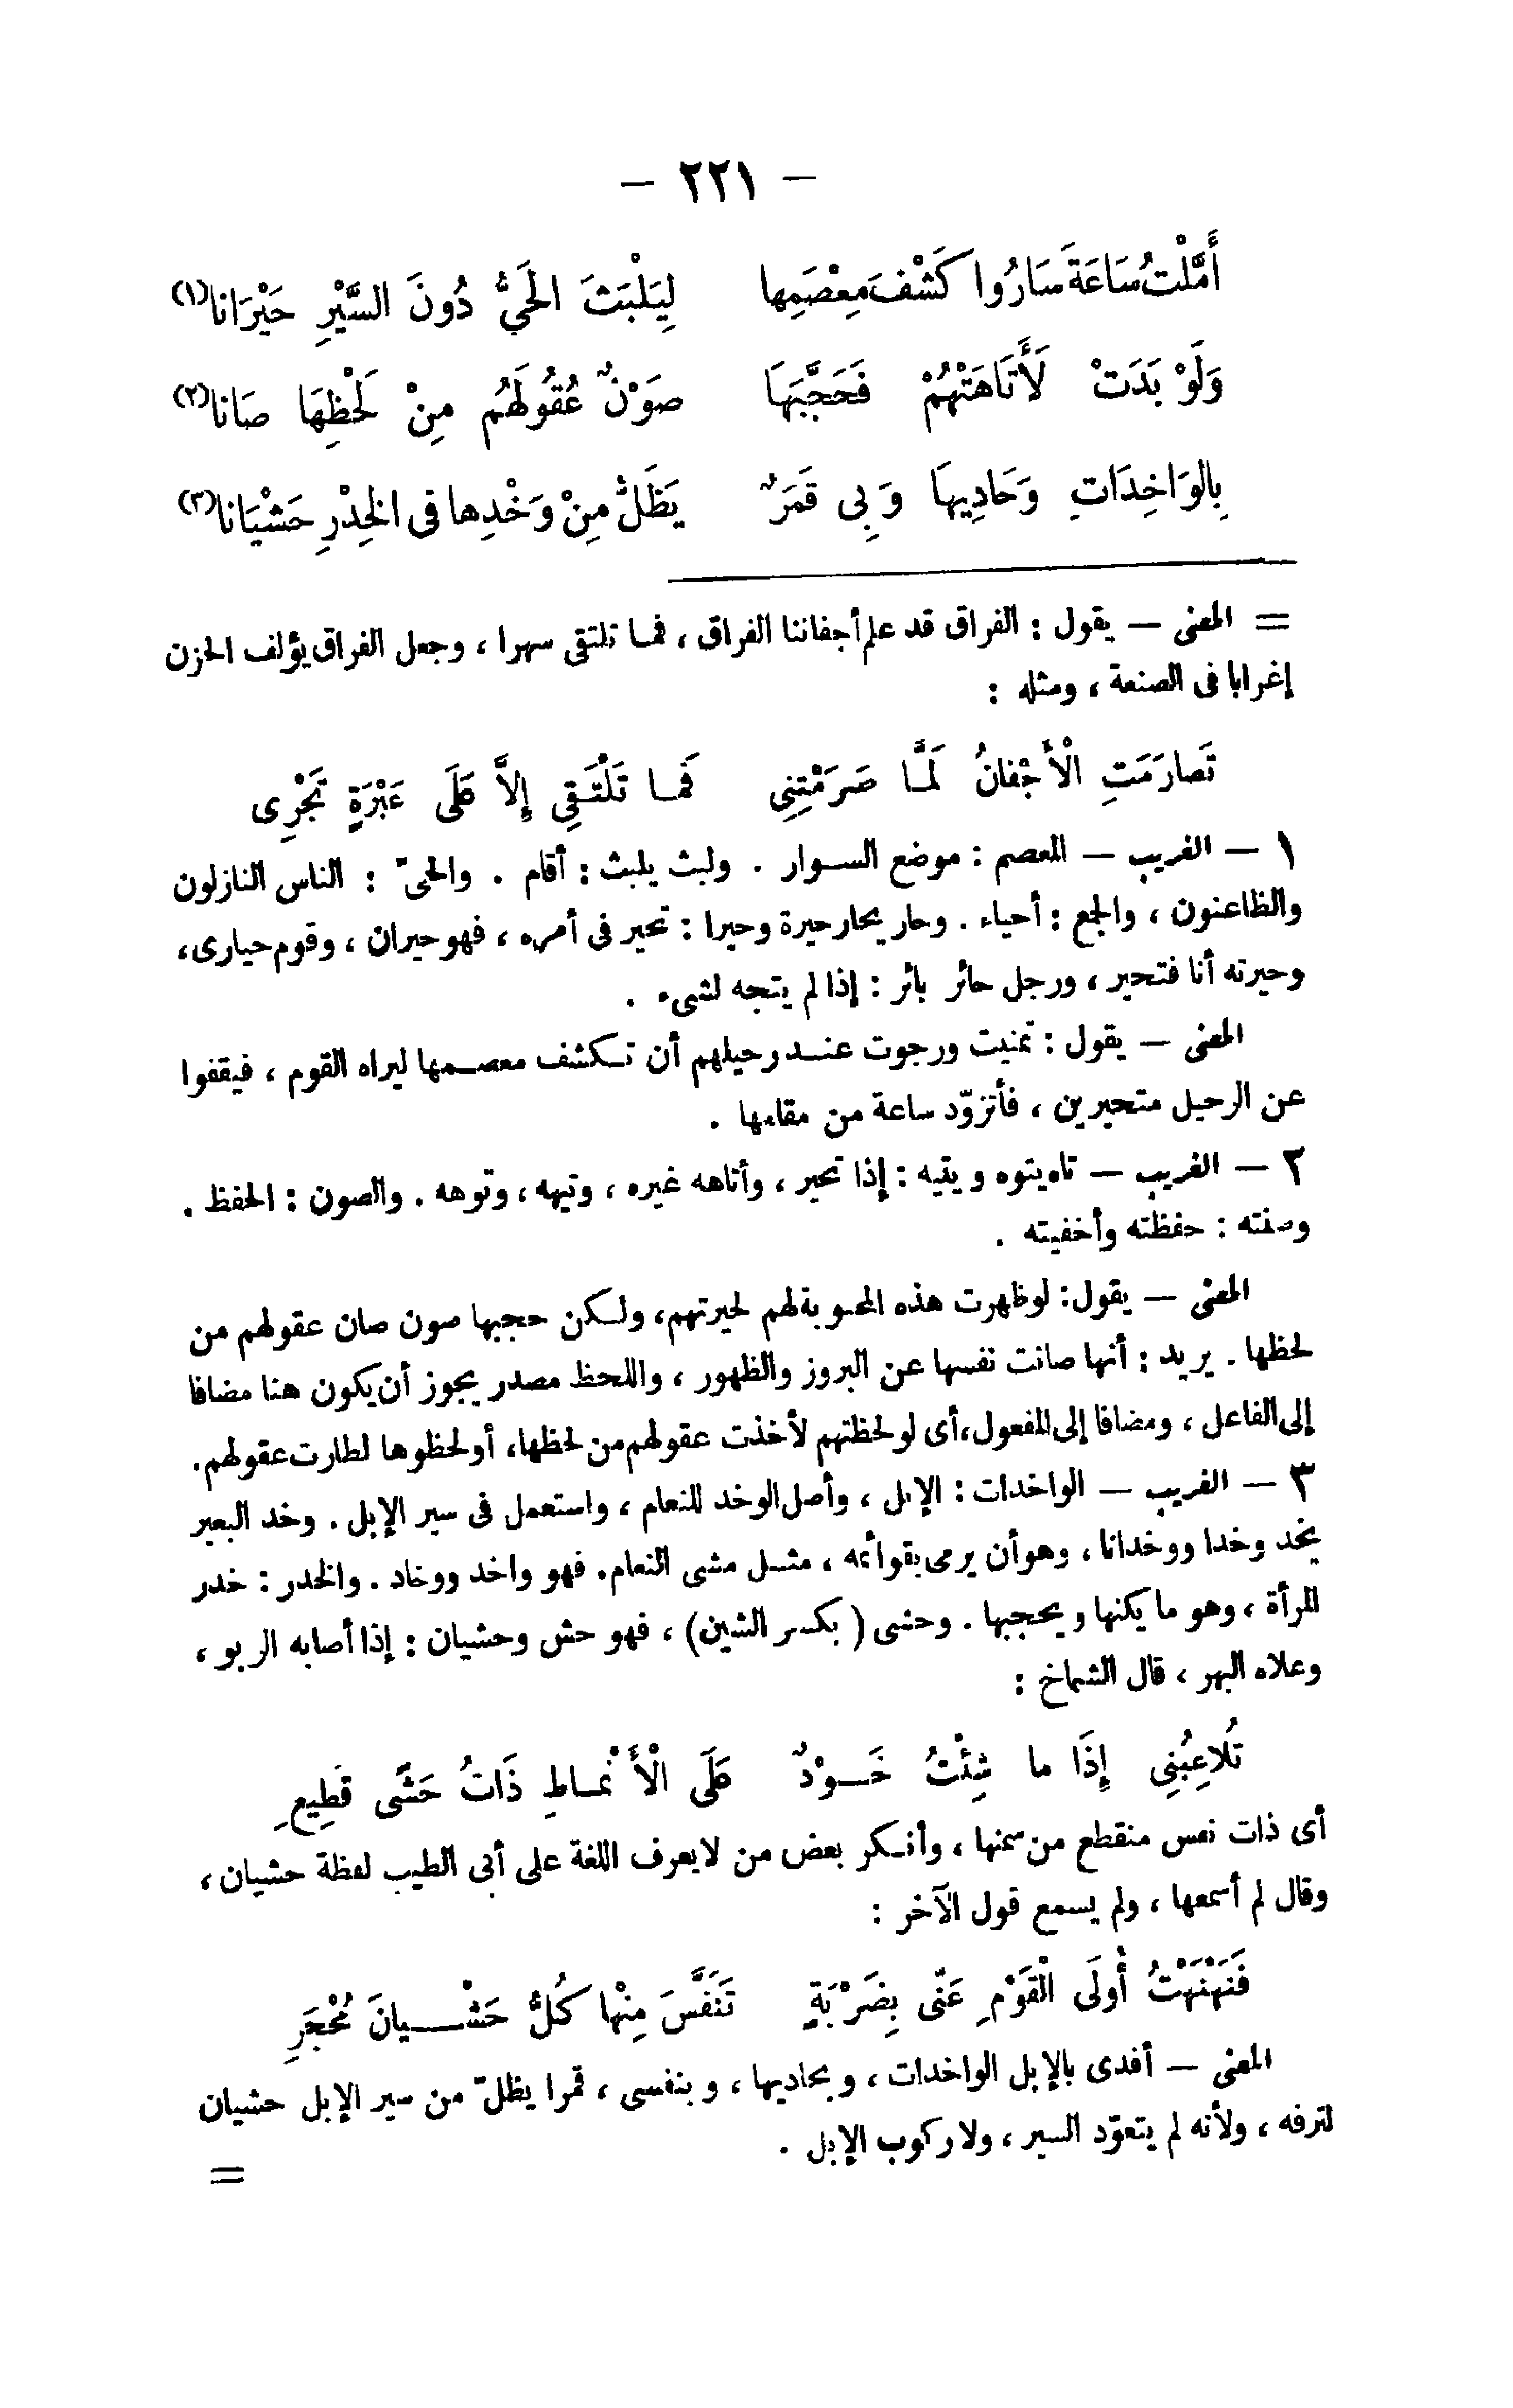 — ٢٢١ —
أَمَّلْتُ سَاعَةَ سَارُوا كَشْفَ مِعْصَمِها لِيَلْبَثَ الحَيُّ دُونَ السَّيْرِ حَيْرَانا(١)
وَلَوْ بَدَتْ لَأَتَاهَتْهُمْ فَحَجَّبَهَا صَوْنٌ عُقُولَهُم مِنْ لَحْظِهَا صَانا(٢)
بِالوَاخِدَاتِ وَحَادِيهاَ وَبِى قَمَرٌ يَظَلُّ مِنْ وَخْدِها فى الخِدْرِ حَشْيَانا(٣)
= المعنى — يقول : الفراق قد علم أجفاننا الفراق ، فما تلتقى سهرا ، وجعل الفراق يؤلف الحزن
إغرابا فى الصنعة ، ومثله :
تَصارَمَتِ الْأَجْفانُ لَمَّا صَرَمْتِنِى فَما تَلْتَقِى إِلاَّ عَلَى عَبْرَةٍ تَجْرِى
١ — الغريب — المعصم : موضع السوار . ولبث يلبث : أقام . والحىّ : الناس النازلون
والظاعنون ، والجمع : أحياء . وحار يحار حيرة وحيرا : تحير فى أمره ، فهو حيران ، وقوم حيارى ،
وحيرته أنا فتحير ، ورجل حائر بائر : إذا لم يتجه لشىء .
المعنى — يقول : تمنيت ورجوت عند رحيلهم أن تكشف معصمها ليراه القوم ، فيقفوا
عن الرحيل متحيرين ، فأتزوّد ساعة من مقامها .
٢ — الغريب — تاه يتوه ويتيه : إذا تحير ، وأتاهه غيره ، وتيهه ، وتوهه . والصون : الحفظ .
وصنته : حفظته وأخفيته .
المعنى — يقول : لو ظهرت هذه المحبوبة لهم لحيرتهم ، ولكن حجبها صون صان عقولهم من
لحظها . يريد : أنها صانت نفسها عن البروز والظهور ، واللحظ مصدر يجوز أن يكون هنا مضافا
إلى الفاعل ، ومضافا إلى المفعول ، أى لو لحظتهم لأخذت عقولهم من لحظها ، أو لحظوها لطارت عقولهم .
٣ — الغريب — الواخدات : الإبل ، وأصل الوخد للنعام ، واستعمل فى سير الإبل . وخد البعير
يخد وخدا ووخدانا ، وهو أن يرمى بقوائمه ، مثل مشى النعام . فهو واخد ووخاد . والخدر : خدر
المرأة ، وهو ما يكنها ويحجبها . وحشى ( بكسر الشين ) ، فهو حش وحشيان : إذا أصابه الربو ،
وعلاه البهر ، قال الشماخ :
تُلاعِبُنِى إِذَا ما شِئْتُ خَوْدٌ عَلَى الْأَنْماطِ ذَاتُ حَشًى قَطِيعِ
أى ذات نفس منقطع من سمنها ، وأنكر بعض من لا يعرف اللغة على أبى الطيب لفظة حشيان ،
وقال لم أسمعها ، ولم يسمع قول الآخر :
فَنَهْنَهْتُ أُولَى الْقَوْمِ عَنِّى بِضَرْبَةٍ تَنَفَّسَ مِنْها كُلُّ حَشْيانَ مُحْجَرِ
المعنى — أفدى بالإبل الواخدات ، وبحاديها ، وبنفسى ، قمرا يظلّ من سير الإبل حشيان
لترفه ، ولأنه لم يتعوّد السير ، ولا ركوب الإبل .
=